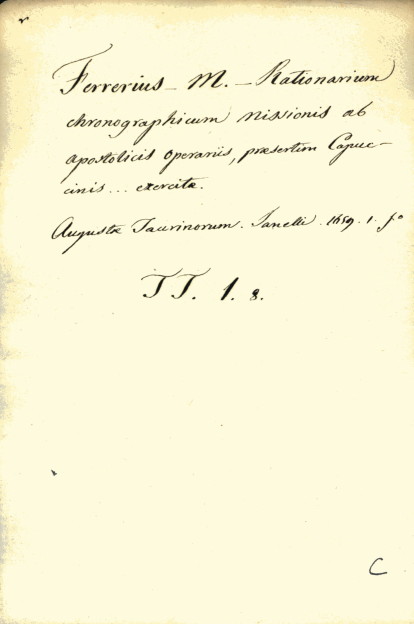 Ferrerius _ M. _ Rationarium
chronographicum missionis ab
apostolicis operariis, præsertim Capuc-
cinis ... exercitæ.
Augustæ Taurinorum. Ianelli. 1659. 1. fo
TT. 1. 8.
C